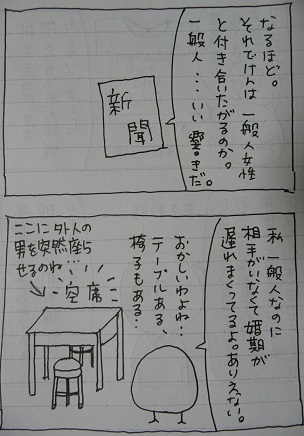 なるほど。
それでけんは一般人女性
と付き合いたがるのか。
一般人・・・いい響きだ。
新聞
私一般人なのに
相手がいなくて婚期が
遅れまくってるよ。ありえない。
おかしいわよね・・・
テーブルある、
椅子もある・・
ここに外人の
男を突然座ら
せるのね・・・
空席